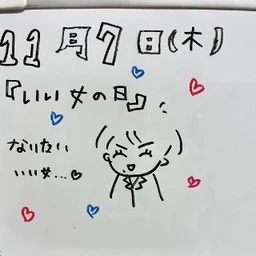 11月7日(木)
『いい女の日』。
なりたい
いい女…♡